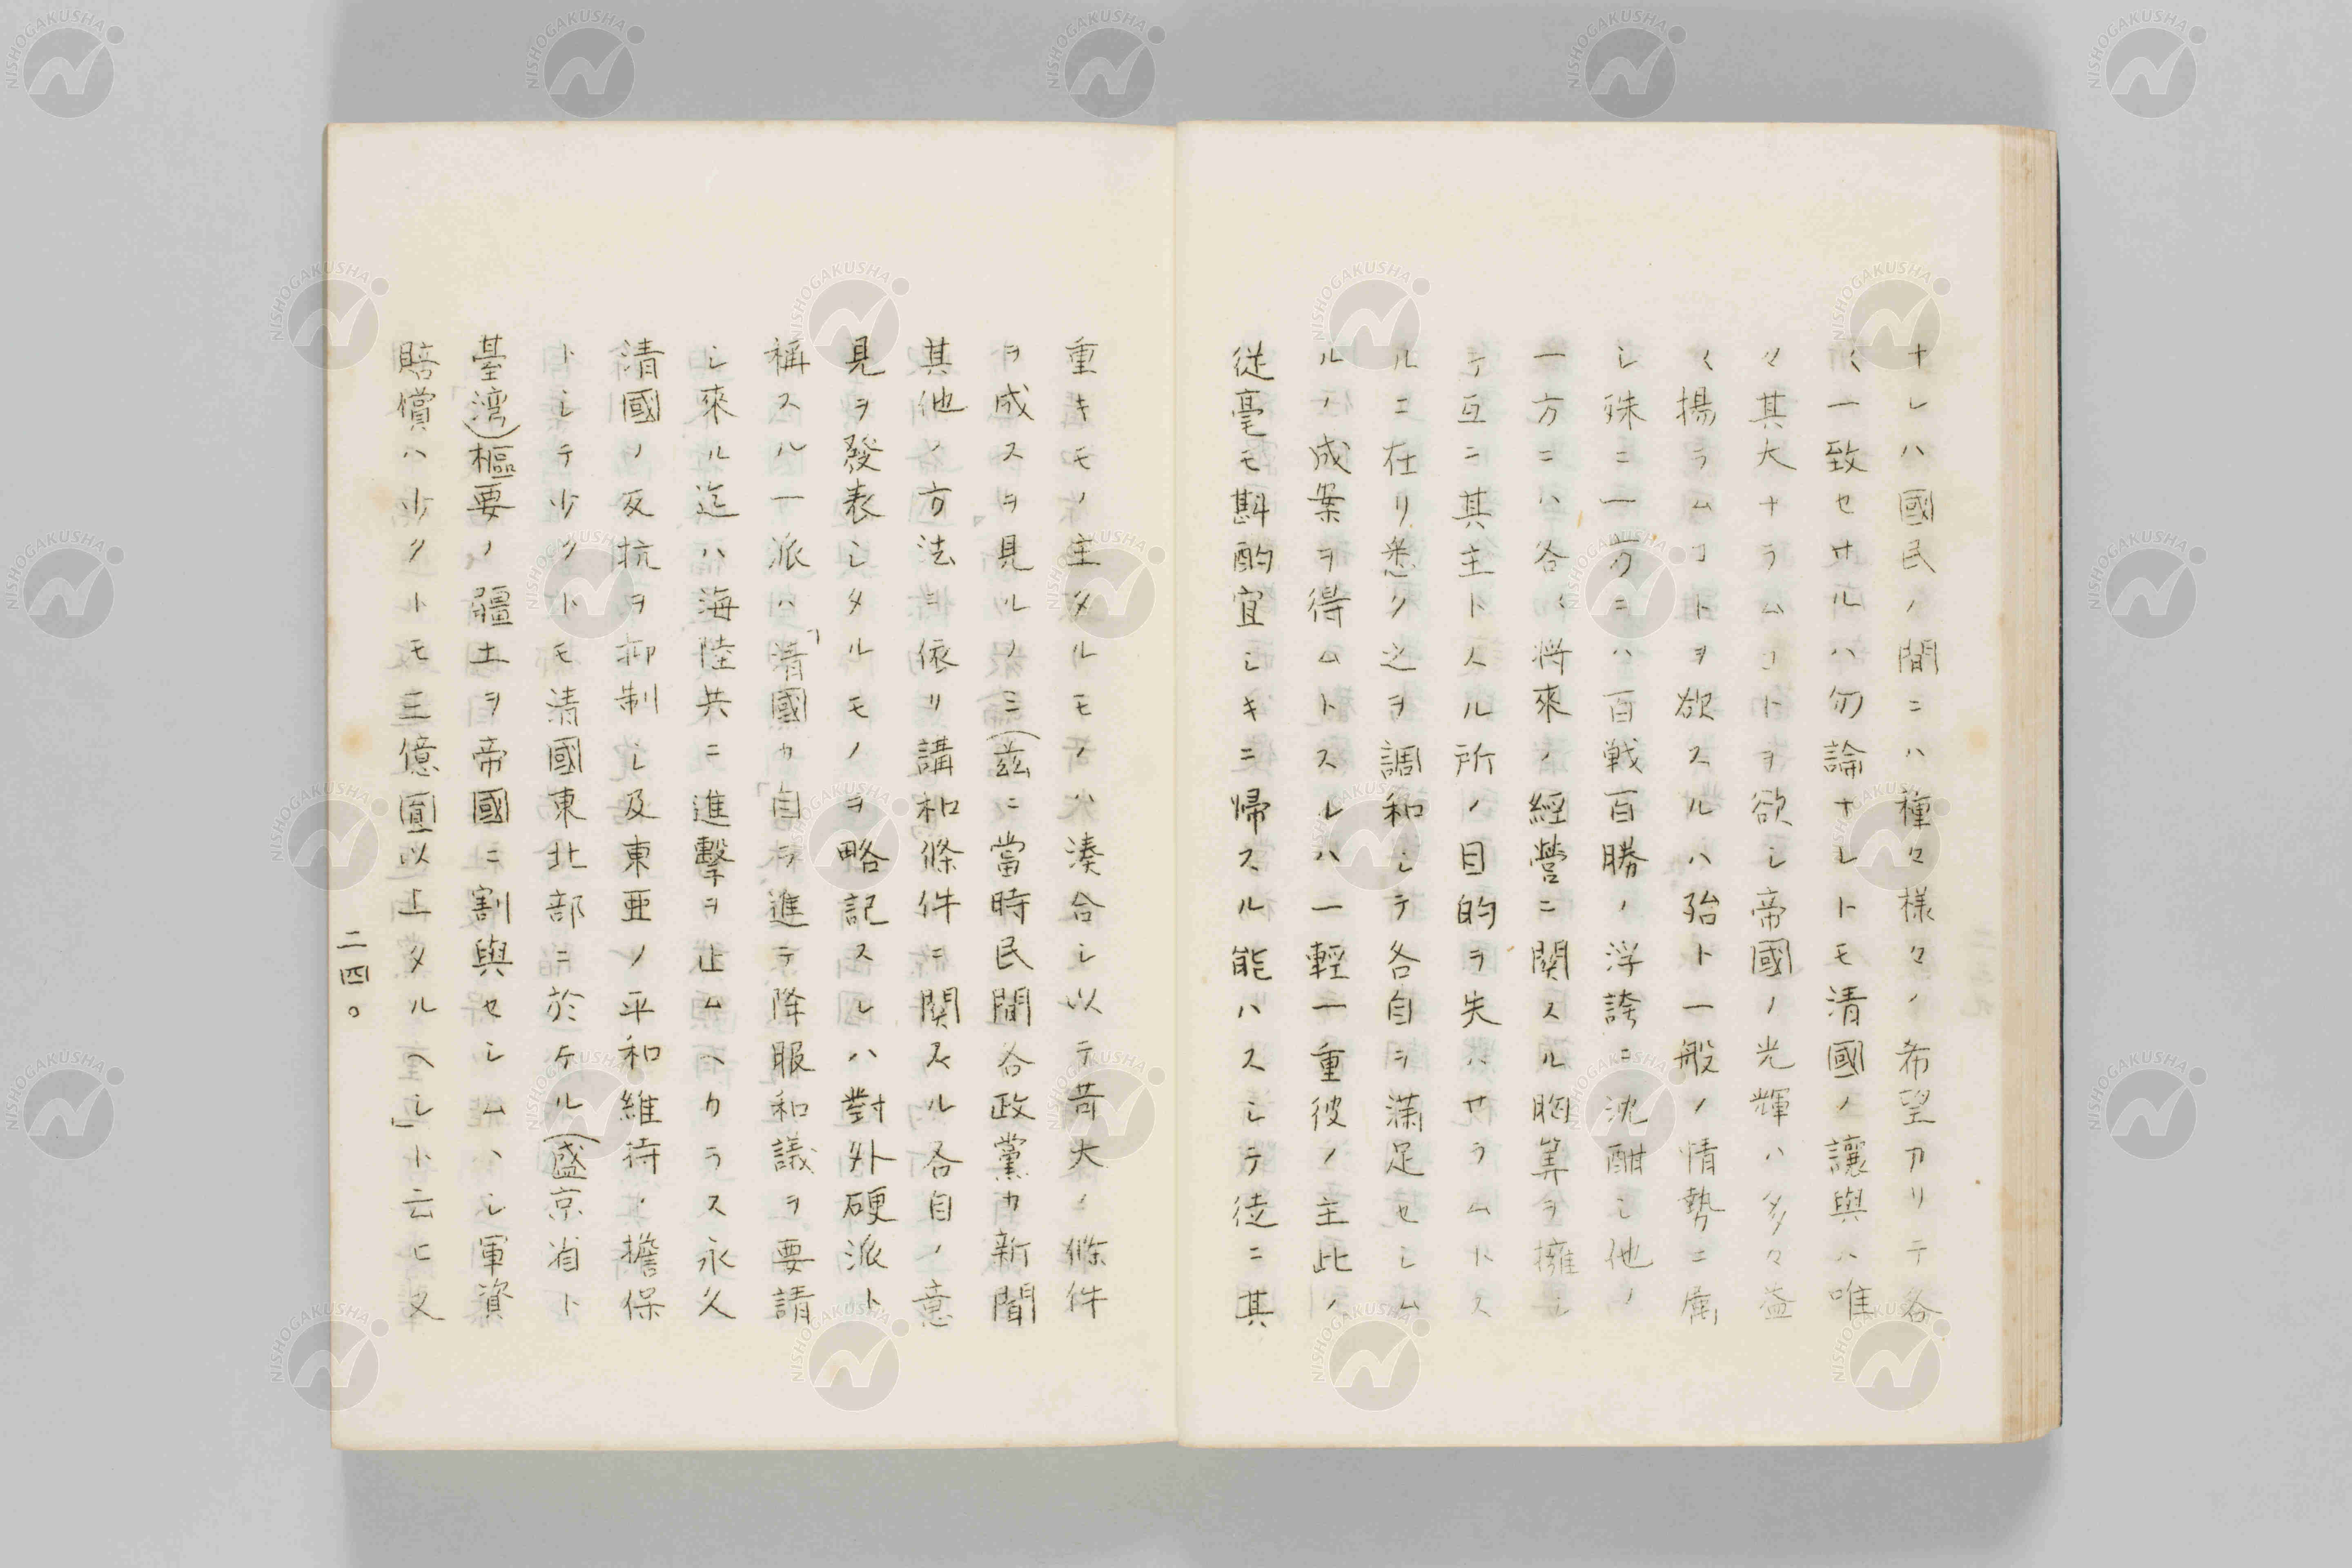 ナレハ國民ノ間ニハ種々様々ノ希望アリテ各
〱一致セサルハ勿論ナレトモ清國ノ讓與ハ唯
々其大ナラムコトヲ欲シ帝國ノ光輝ハ多々益
〱揚ラムコトヲ欲スルハ殆ト一般ノ情勢ニ属
シ殊ニ一方ニハ百戦百勝ノ浮誇ニ沈酣シ他ノ
一方ニハ各〱将來ノ經營ニ関スル胸算ヲ擁シ
テ互ニ其主トスル所ノ目的ヲ失ハサラムトス
ルニ在リ悉ク之ヲ調和シテ各自ヲ満足セシム
ルノ成案ヲ得ムトスルハ一輕一重彼ノ主此ノ
従毫モ斟酌宜シキニ帰スル能ハスシテ徒ニ其
重キモノ主タルモノハ湊合シ以テ苛大ノ條件
ヲ成スヲ見ルノミ(茲ニ當時民間各政黨カ新聞
其他ノ方法ヨ依リ講和條件ニ関スル各自ノ意
見ヲ發表シタルモノヲ略記スレハ對外硬派ト
稱スル一派ハ「清國カ自ラ進テ降服和議ヲ要請
シ來ル迄ハ海陸共ニ進擊ヲ止ムヘカラス永久
清國ノ反抗ヲ抑制シ及東亜ノ平和維持ノ擔保
トシテ少クトモ清國東北部ニ於ケル(盛京省ト
臺湾)樞要ノ疆土ヲ帝國ニ割與セシムハシ軍資
賠償ハ少クトモ三億圓以上タルヘシ」ト云ヒ又
二四〇
NISHOGAKUSHA